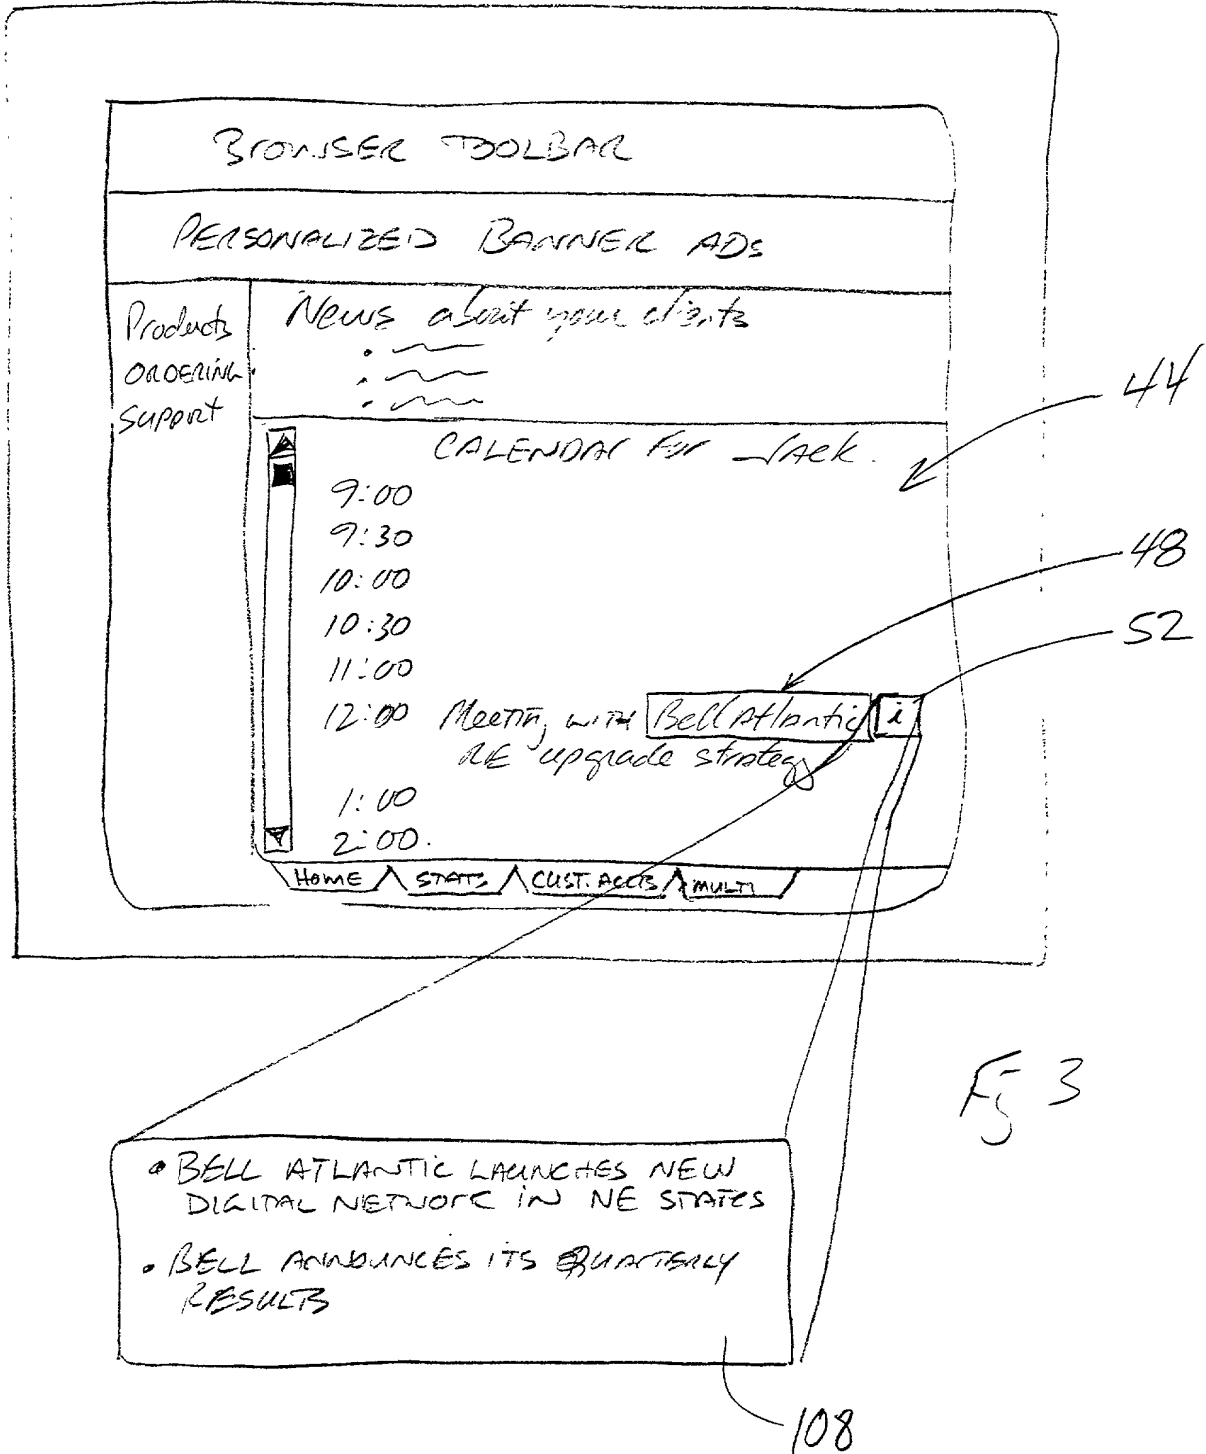 BROWSER TOOLBAR
PERSONALIZED BANNER ADs
Products
ORDERING
Support
News about your clients
CALENDAR For Jack.
9:00
9:30
10:00
10:30
11:00
12:00 Meeting with Bell Atlantic i
RE upgrade strategy
1:00
2:00.
HOME STATS CUST. ACCTS MULTI
44
48
52
Fig 3
• BELL ATLANTIC LAUNCHES NEW
DIGITAL NETWORK IN NE STATES
• BELL ANNOUNCES ITS QUARTERLY
RESULTS
108